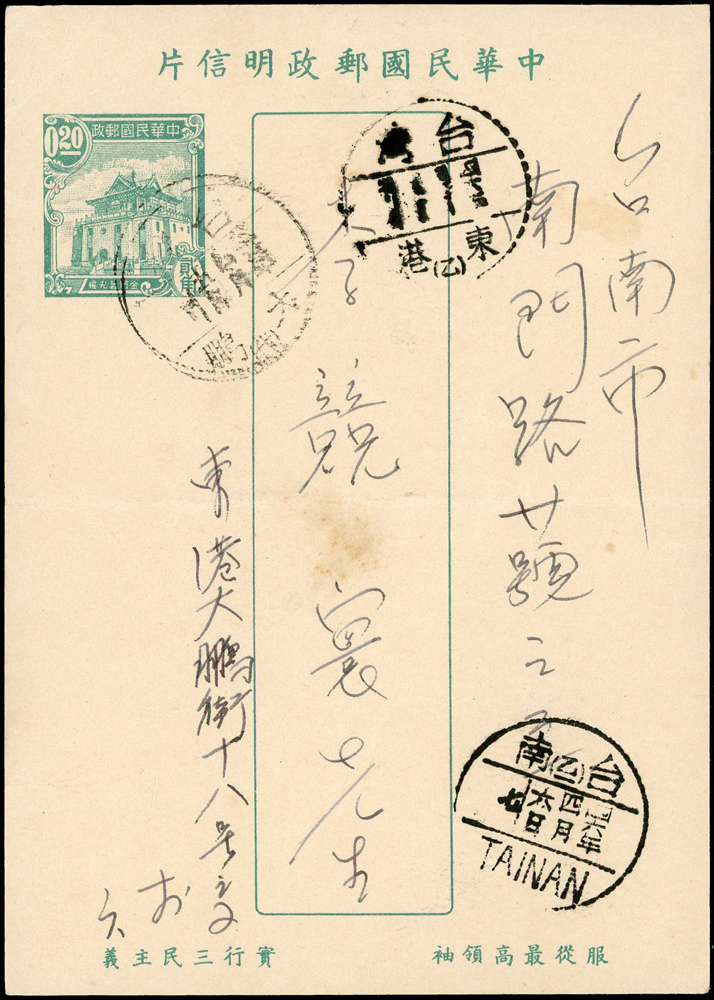 中華民國郵政明信片
中華民國郵政
0.20
貳角
台南市
南門路廿號之
台
東港
(乙)
競寰先生
東港大鵬街十八号之
大鵬
台南
(乙)
四六年
四月
六日
TAINAN
服從最高領袖
實行三民主義